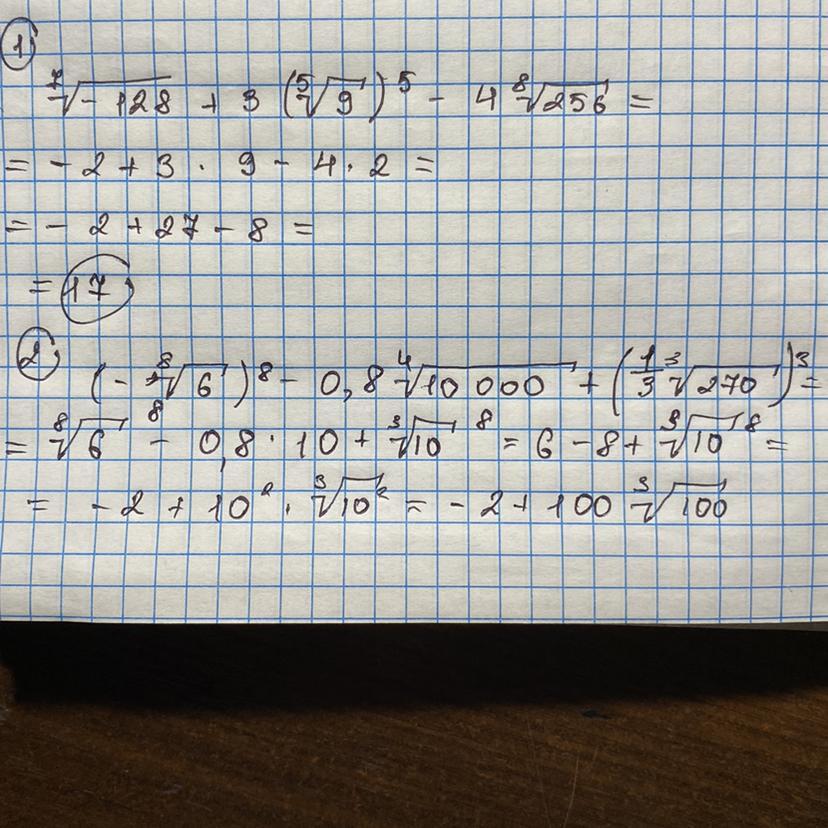 1
⁷√-128 + 3 (⁵√9)⁵ - 4 ⁸√256 =
= - 2 + 3 · 9 - 4 · 2 =
= - 2 + 27 - 8 =
= 17
2
(- ⁸√6)⁸ - 0,8 ⁴√10 000 + (1/3 ³√270)³ =
= ⁸√6⁸ - 0,8 · 10 + ³√10⁸ = 6 - 8 + ³√10⁸ =
= - 2 + 10² · ³√10² = - 2 + 100 ³√100